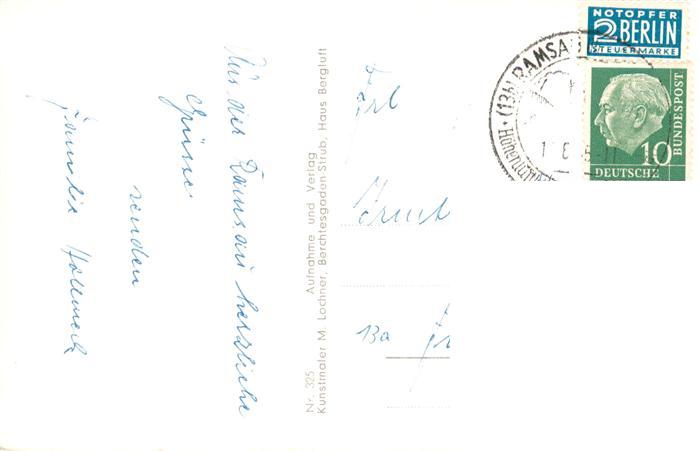 Aus der Ramsau herzliche
Grüsse
senden
Familie
Nr. 325 Aufnahme und Verlag
Kunstmaler M. Lochner, Berchtesgaden-Strub, Haus Bergluft
Frl
13a
NOTOPFER
2 BERLIN
STEUERMARKE
(13b) RAMSA
10
DEUTSCHE
BUNDESPOST